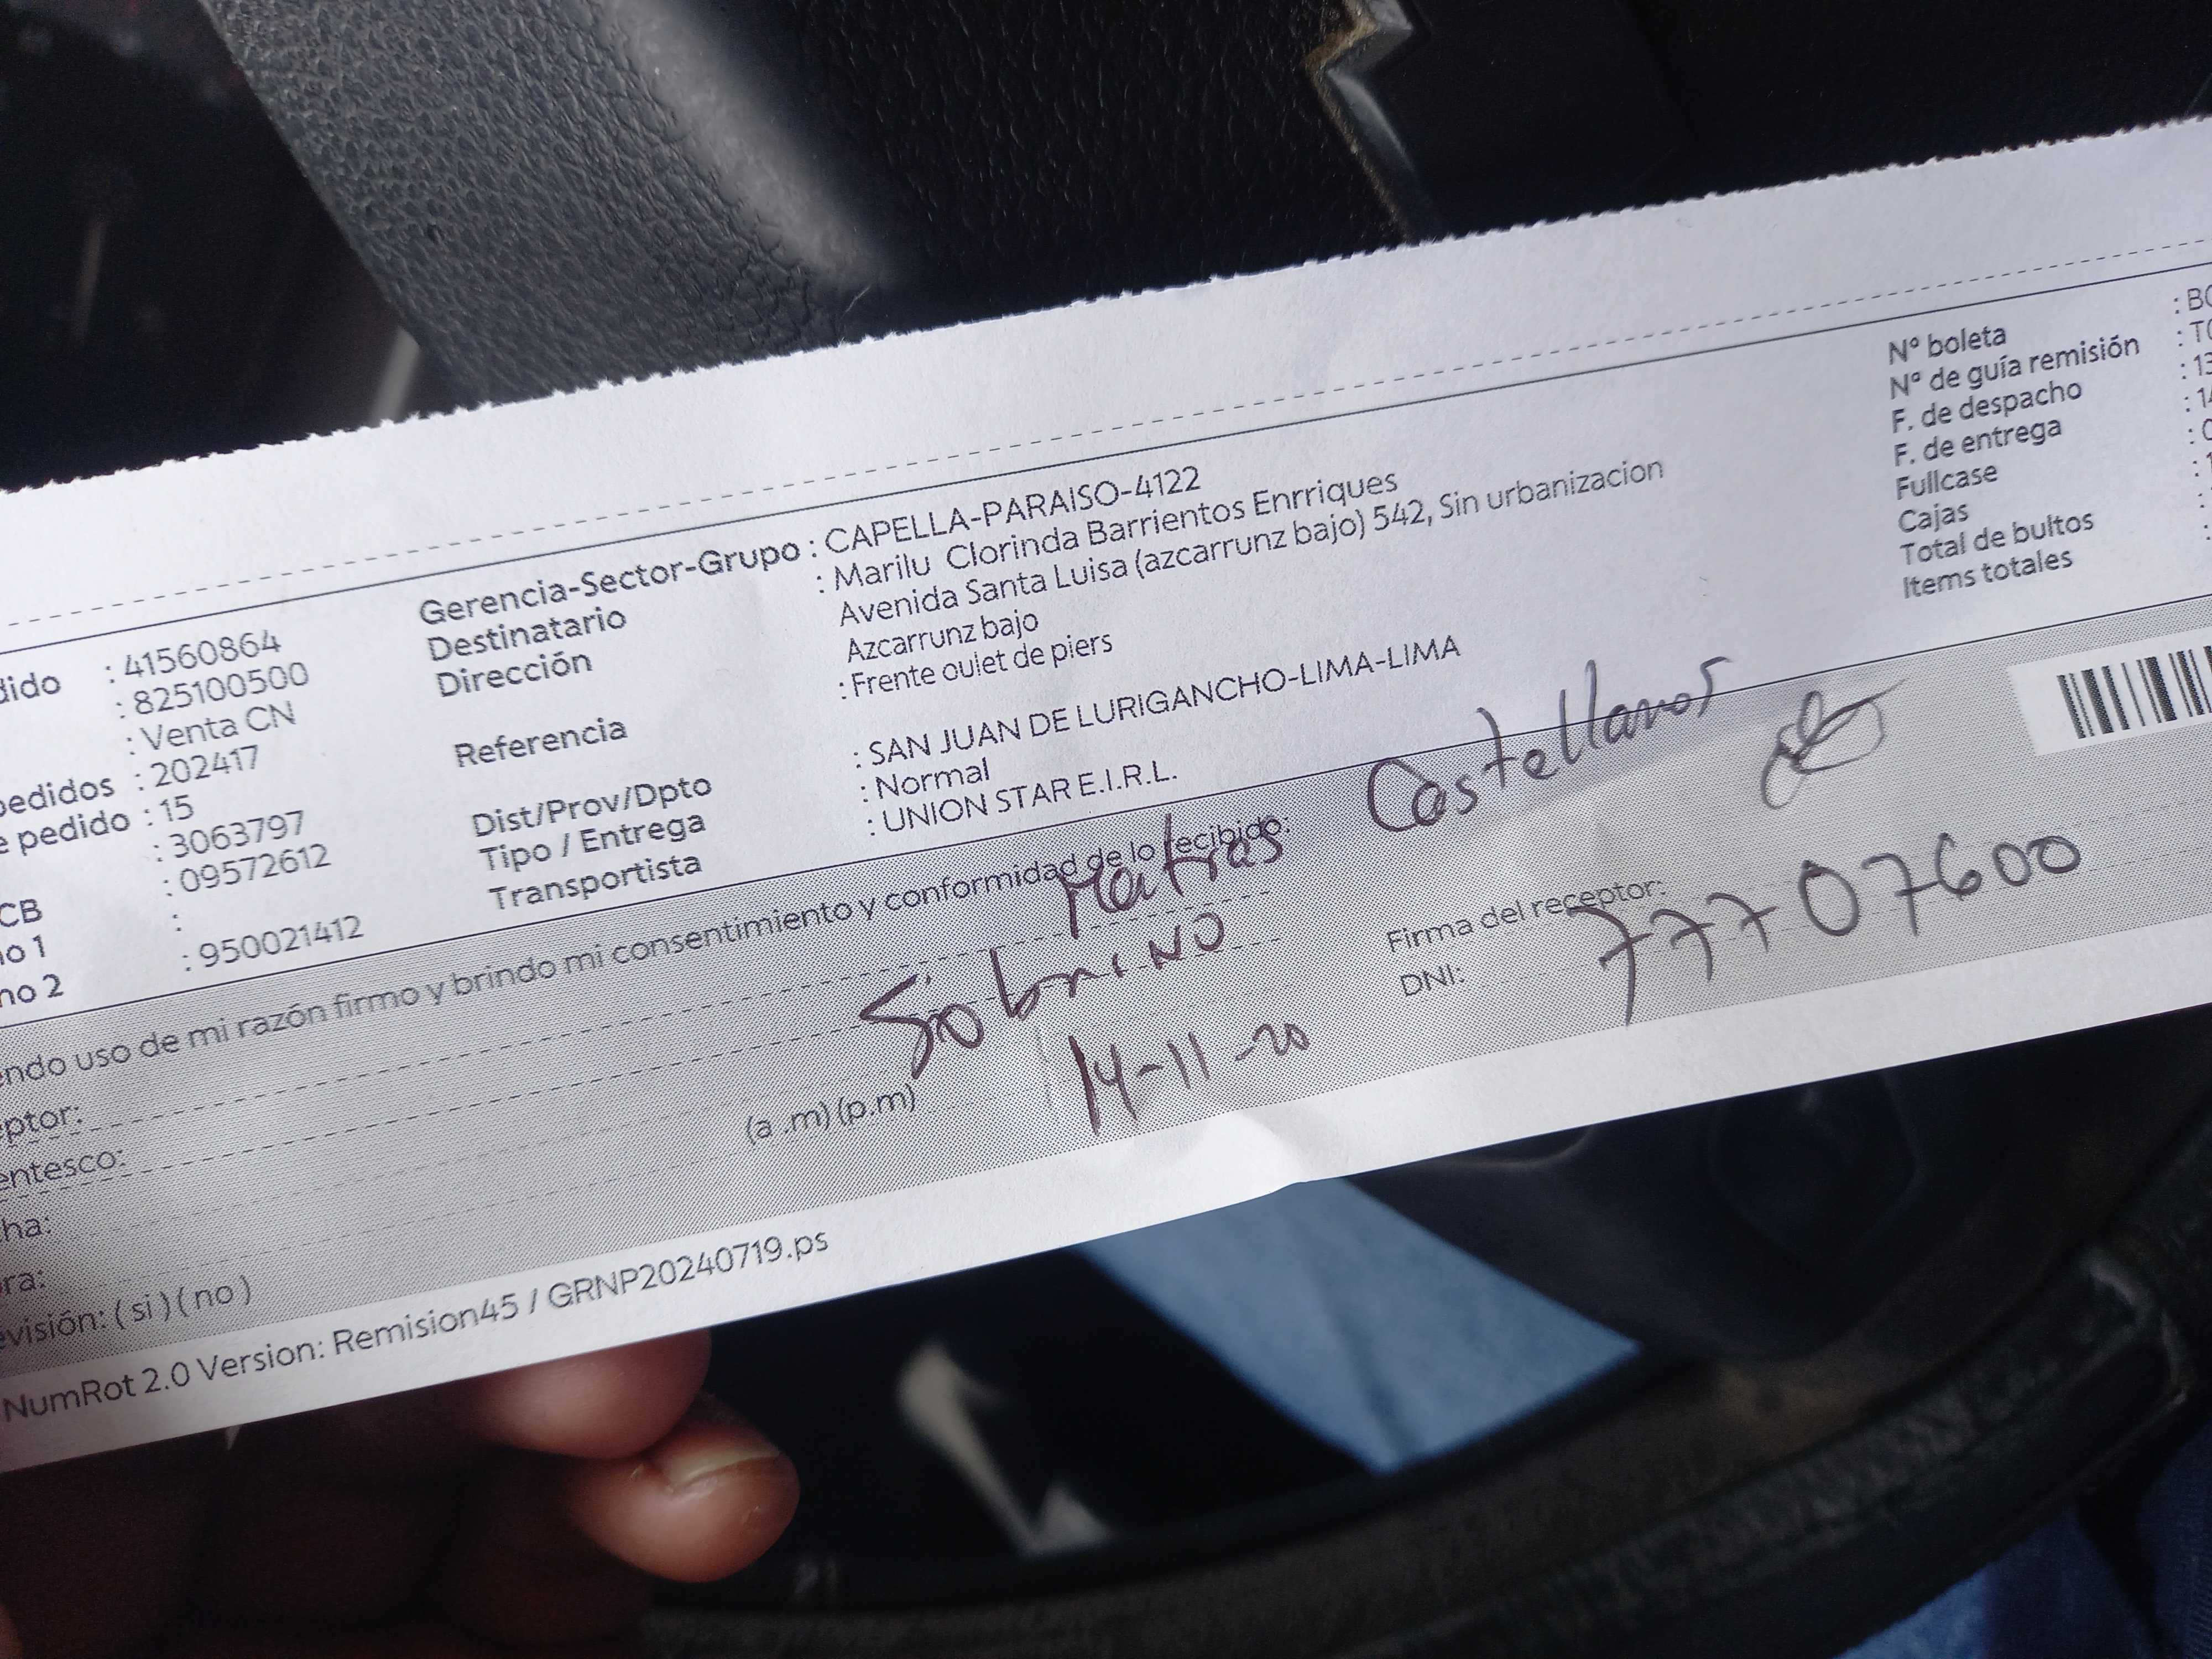 dido : 41560864
: 825100500
: Venta CN
pedidos : 202417
e pedido : 15
: 3063797
CB : 09572612
no 1 :
no 2 : 950021412
Gerencia-Sector-Grupo : CAPELLA-PARAISO-4122
Destinatario : Marilu Clorinda Barrientos Enrriques
Dirección Avenida Santa Luisa (azcarrunz bajo) 542, Sin urbanizacion
Azcarrunz bajo
Referencia : Frente oulet de piers
Dist/Prov/Dpto : SAN JUAN DE LURIGANCHO-LIMA-LIMA
Tipo / Entrega : Normal
Transportista : UNION STAR E.I.R.L.
Nº boleta : B
Nº de guía remisión : T
F. de despacho : 13
F. de entrega : 14
Fullcase :
Cajas :
Total de bultos :
Items totales :
endo uso de mi razón firmo y brindo mi consentimiento y conformidad de lo recibido:
eptor: Castellanos
entesco: Sobrino
cha: 14-11-20
ora: (a .m) (p.m)
evisión: ( si ) ( no )
Firma del receptor:
DNI: 77707600
NumRot 2.0 Version: Remision45 / GRNP20240719.ps